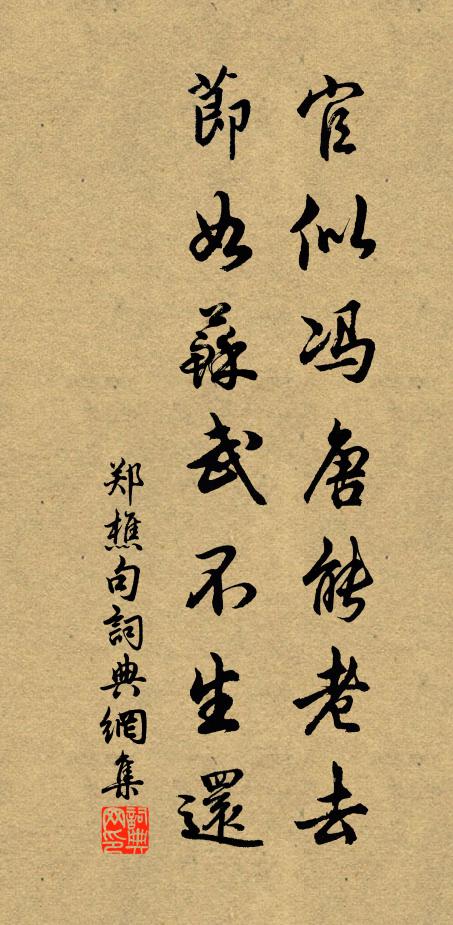 官似冯唐能老去
節如蘇武不生還
郑樵句詞典網集
詞典网印